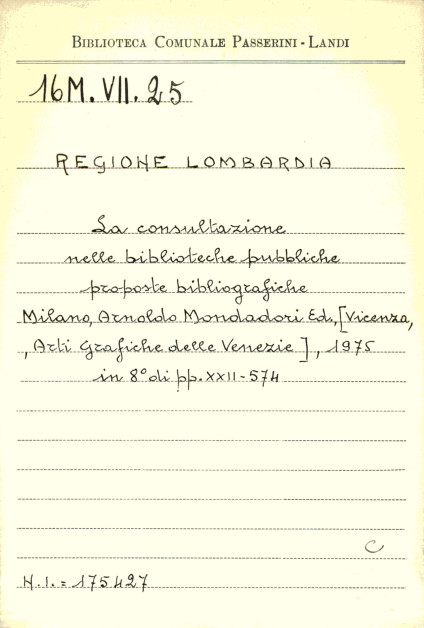 BIBLIOTECA COMUNALE PASSERINI-LANDI
16M.VII.25
REGIONE LOMBARDIA
La consultazione
nelle biblioteche pubbliche
proposte bibliografiche
Milano, Arnoldo Mondadori Ed., [Vicenza,
, Arti Grafiche delle Venezie], 1975
in 8° di pp. XXII-574
C
N.I. = 175427